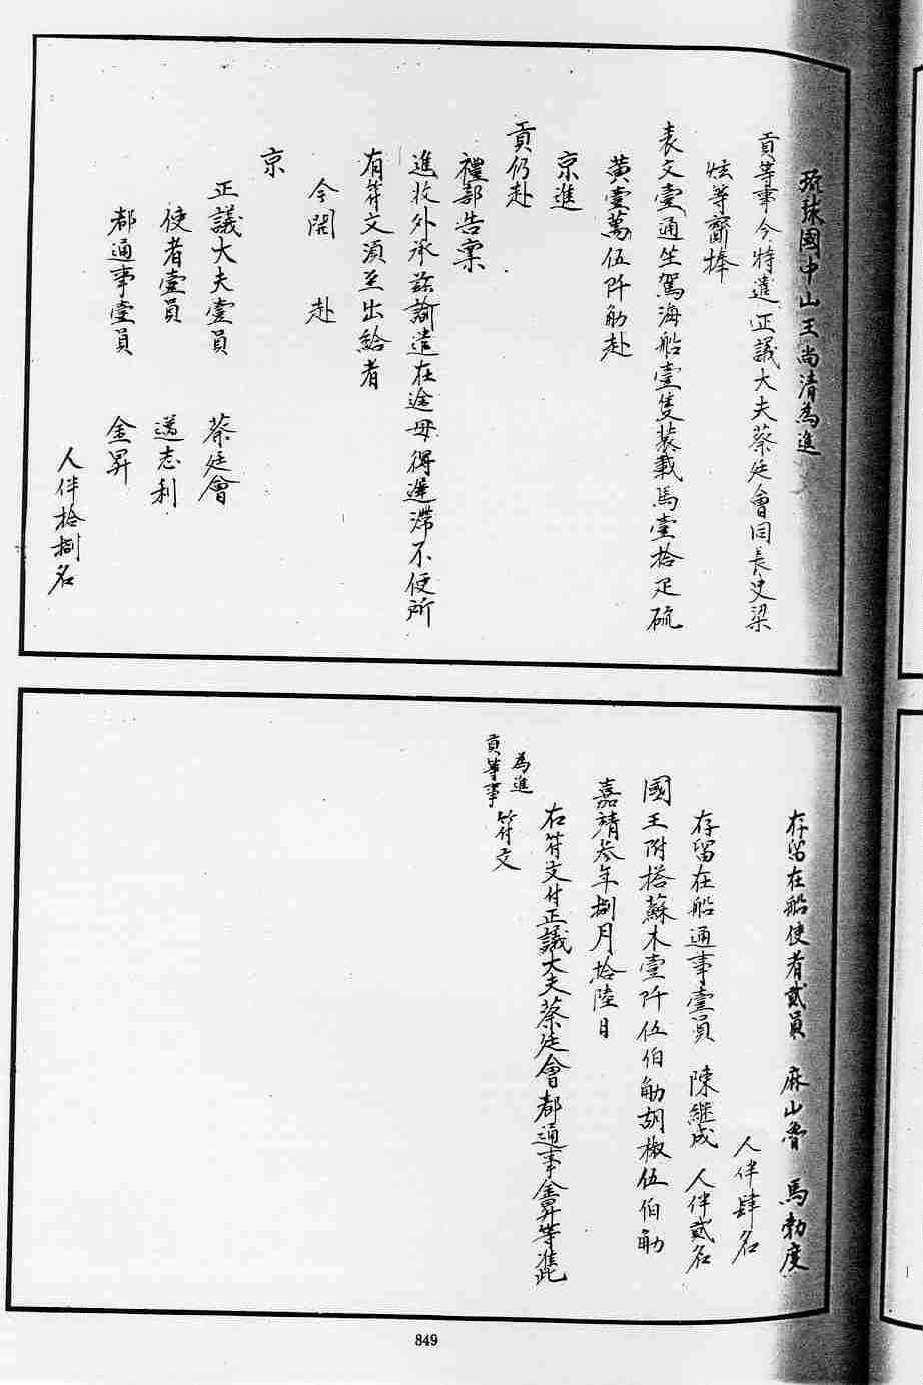 琉球國中山王尚清為進
貢等事今特遣正議大夫蔡廷會同長史梁
炫等齎捧
表文壹通坐駕海船壹隻装載馬壹拾疋硫
黄壹萬伍阡觔赴
京進
貢仍赴
禮部告稟
進收外承兹諭遣在途毋得遲滯不便所
有符文湏至出給者
今開　赴
京
正議大夫壹員　蔡廷會
使者壹員　志利
都通事壹員　金昇
人伴拾捌名
存留在船使者貳員　麻山魯　馬勃度
人伴肆名
存留在船通事壹員　陳継成　人伴貳名
國王附搭蘇木壹阡伍伯觔胡椒伍伯觔
嘉靖叁年捌月拾陸日
右符文付正議大夫蔡廷會都通事金昇等准此
為進
貢等事
符文
849